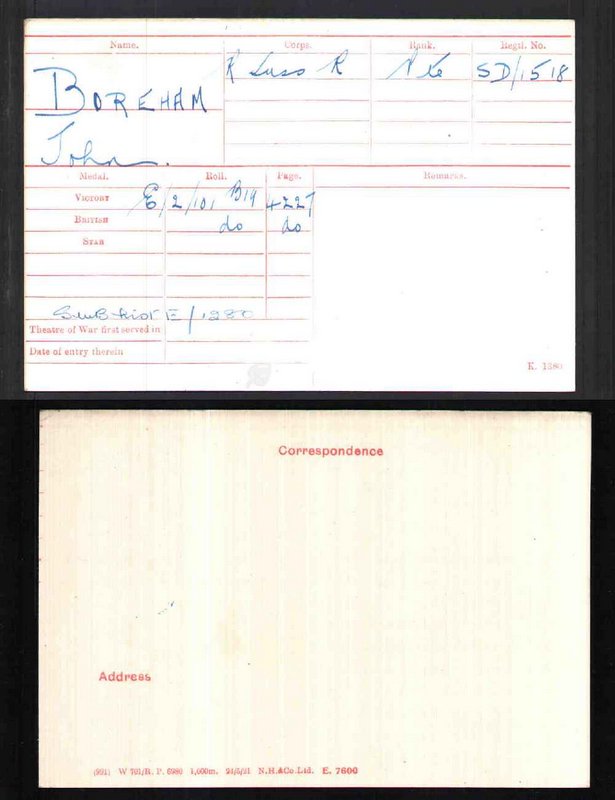 Name. Corps. Rank. Regtl. No.
BOREHAM R Suss R Pte SD/1518
John.
Medal. Roll. Page. Remarks.
VICTORY E/2/101 B19 4227
BRITISH do do
STAR
E/1280
Theatre of War first served in
Date of entry therein
K. 1380
Correspondence
Address
(991) W 701/R.P. 6980 1,000m. 24/5/21 N.H.&Co.Ltd. E. 7600